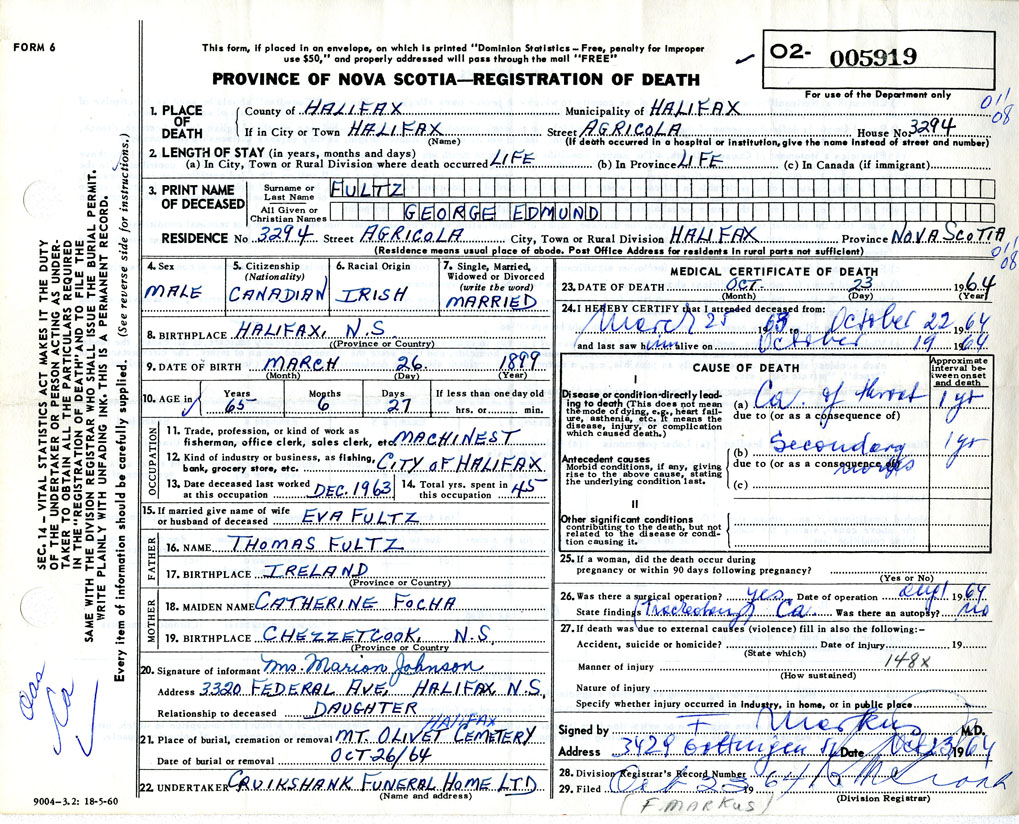 FORM 6
This form, if placed in an envelope, on which is printed "Dominion Statistics – Free, penalty for improper
use $50," and properly addressed will pass through the mail "FREE"
PROVINCE OF NOVA SCOTIA—REGISTRATION OF DEATH
O2- 005919
For use of the Department only
011
08
SEC. 14 – VITAL STATISTICS ACT MAKES IT THE DUTY
OF THE UNDERTAKER OR PERSON ACTING AS UNDER-
TAKER TO OBTAIN ALL THE PARTICULARS REQUIRED
IN THE "REGISTRATION OF DEATH" AND TO FILE THE
SAME WITH THE DIVISION REGISTRAR WHO SHALL ISSUE THE BURIAL PERMIT.
WRITE PLAINLY WITH UNFADING INK. THIS IS A PERMANENT RECORD.
Every item of information should be carefully supplied. (See reverse side for instructions.)
1. PLACE OF DEATH
County of HALIFAX Municipality of HALIFAX
If in City or Town HALIFAX Street AGRICOLA House No. 3294
(Name) (If death occurred in a hospital or institution, give the name instead of street and number)
2. LENGTH OF STAY (in years, months and days)
(a) In City, Town or Rural Division where death occurred LIFE (b) In Province LIFE (c) In Canada (if immigrant)
3. PRINT NAME OF DECEASED
Surname or Last Name FULTZ
All Given or Christian Names GEORGE EDMUND
RESIDENCE No 3294 Street AGRICOLA City, Town or Rural Division HALIFAX Province NOVA SCOTIA
(Residence means usual place of abode. Post Office Address for residents in rural parts not sufficient)
011
08
4. Sex MALE
5. Citizenship (Nationality) CANADIAN
6. Racial Origin IRISH
7. Single, Married, Widowed or Divorced (write the word) MARRIED
8. BIRTHPLACE HALIFAX, N.S
(Province or Country)
9. DATE OF BIRTH MARCH 26 1899
(Month) (Day) (Year)
10. AGE in Years Months Days If less than one day old
65 6 27 hrs. or min.
OCCUPATION
11. Trade, profession, or kind of work as
fisherman, office clerk, sales clerk, etc. MACHINEST
12. Kind of industry or business, as fishing,
bank, grocery store, etc. CITY OF HALIFAX
13. Date deceased last worked at this occupation DEC. 1963 14. Total yrs. spent in this occupation 45
15. If married give name of wife
or husband of deceased EVA FULTZ
FATHER
16. NAME THOMAS FULTZ
17. BIRTHPLACE IRELAND
(Province or Country)
MOTHER
18. MAIDEN NAME CATHERINE FOCHA
19. BIRTHPLACE CHEZZETCOOK, N.S
(Province or Country)
20. Signature of informant Mrs. Marion Johnson
Address 3320 FEDERAL AVE, HALIFAX, N.S,
Relationship to deceased DAUGHTER
HALIFAX
21. Place of burial, cremation or removal MT. OLIVET CEMETERY
Date of burial or removal OCT-26/64
22. UNDERTAKER CRUIKSHANK FUNERAL HOME LTD
(Name and address)
9004–3.2: 18-5-60
Ca
MEDICAL CERTIFICATE OF DEATH
23. DATE OF DEATH OCT. 23 1964
(Month) (Day) (Year)
24. I HEREBY CERTIFY that I attended deceased from:
March 25 1963 to October 22 1964
and last saw him alive on October 19 1964
CAUSE OF DEATH
Approximate interval between onset and death
I
Disease or condition directly leading to death (This does not mean the mode of dying, e.g., heart failure, asthenia, etc. It means the disease, injury, or complication which caused death.)
(a) Ca of throat 1 yr
due to (or as a consequence of)
(b) Secondary 1 yr
due to (or as a consequence of)
(c)
Antecedent causes
Morbid conditions, if any, giving rise to the above cause, stating the underlying condition last.
II
Other significant conditions
contributing to the death, but not related to the disease or condition causing it.
25. If a woman, did the death occur during
pregnancy or within 90 days following pregnancy?
(Yes or No)
26. Was there a surgical operation? yes Date of operation 1964
State findings (Tracheotomy) Ca Was there an autopsy? no
27. If death was due to external causes (violence) fill in also the following:–
Accident, suicide or homicide? Date of injury 19
(State which)
148x
Manner of injury
(How sustained)
Nature of injury
Specify whether injury occurred in industry, in home, or in public place
Signed by F. Markus M.D.
Address 3429 Gottingen St Date Oct 23/1964
28. Division Registrar's Record Number
29. Filed Oct 23 1964
(Division Registrar)
(F. MARKUS)